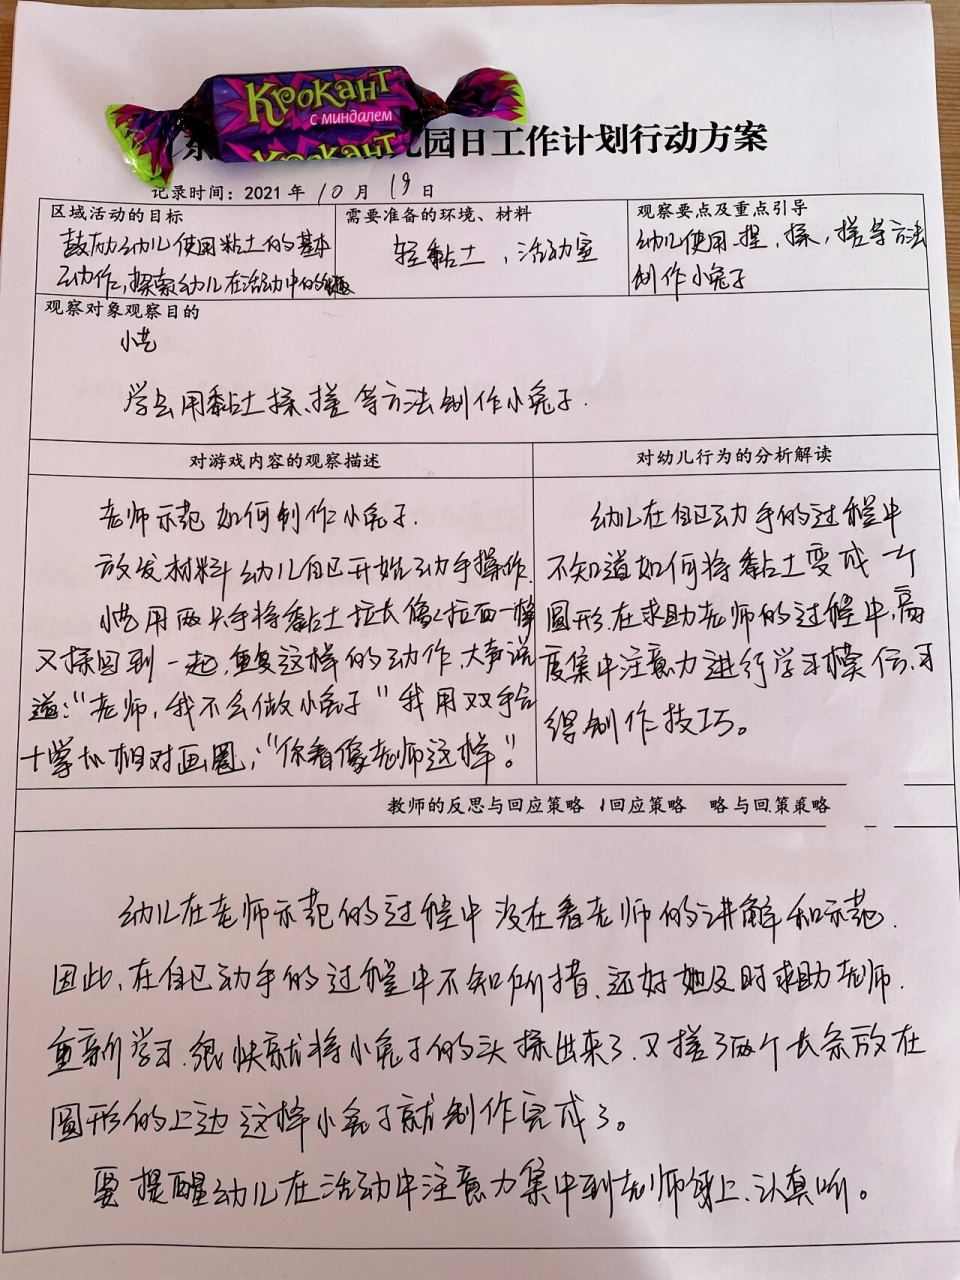 КРОКАНТ
С МИНДАЛЕМ
КРОКАНТ
园日工作计划行动方案
记录时间：2021 年 10 月 19 日
区域活动的目标
鼓励幼儿使用粘土的基本
动作，探索幼儿在活动中的
需要准备的环境、材料
轻黏土，活动室
观察要点及重点引导
幼儿使用捏，揉，搓等方法
制作小兔子
观察对象观察目的
小艺
学会用黏土揉、搓等方法制作小兔子.
对游戏内容的观察描述
老师示范如何制作小兔子.
放发材料幼儿自己开始动手操作.
小艺用两只手将黏土拉长像拉面一样
又揉回到一起，重复这样的动作，大声说
道："老师，我不会做小兔子"我用双手合
十掌心相对画圈，"你看像老师这样。"
对幼儿行为的分析解读
幼儿在自己动手的过程中
不知道如何将黏土变成一个
圆形.在求助老师的过程中,高
度集中注意力进行学习模仿,习
得制作技巧。
教师的反思与回应策略 回应策略 略与回策策略
幼儿在老师示范的过程中没在看老师的讲解和示范.
因此,在自己动手的过程中不知所措、还好她及时求助老师.
重新学习.很快就将小兔子的头揉出来了.又搓了两个长条放在
圆形的上边这样小兔子就制作完成了。
要提醒幼儿在活动中注意力集中到老师身上、认真听。